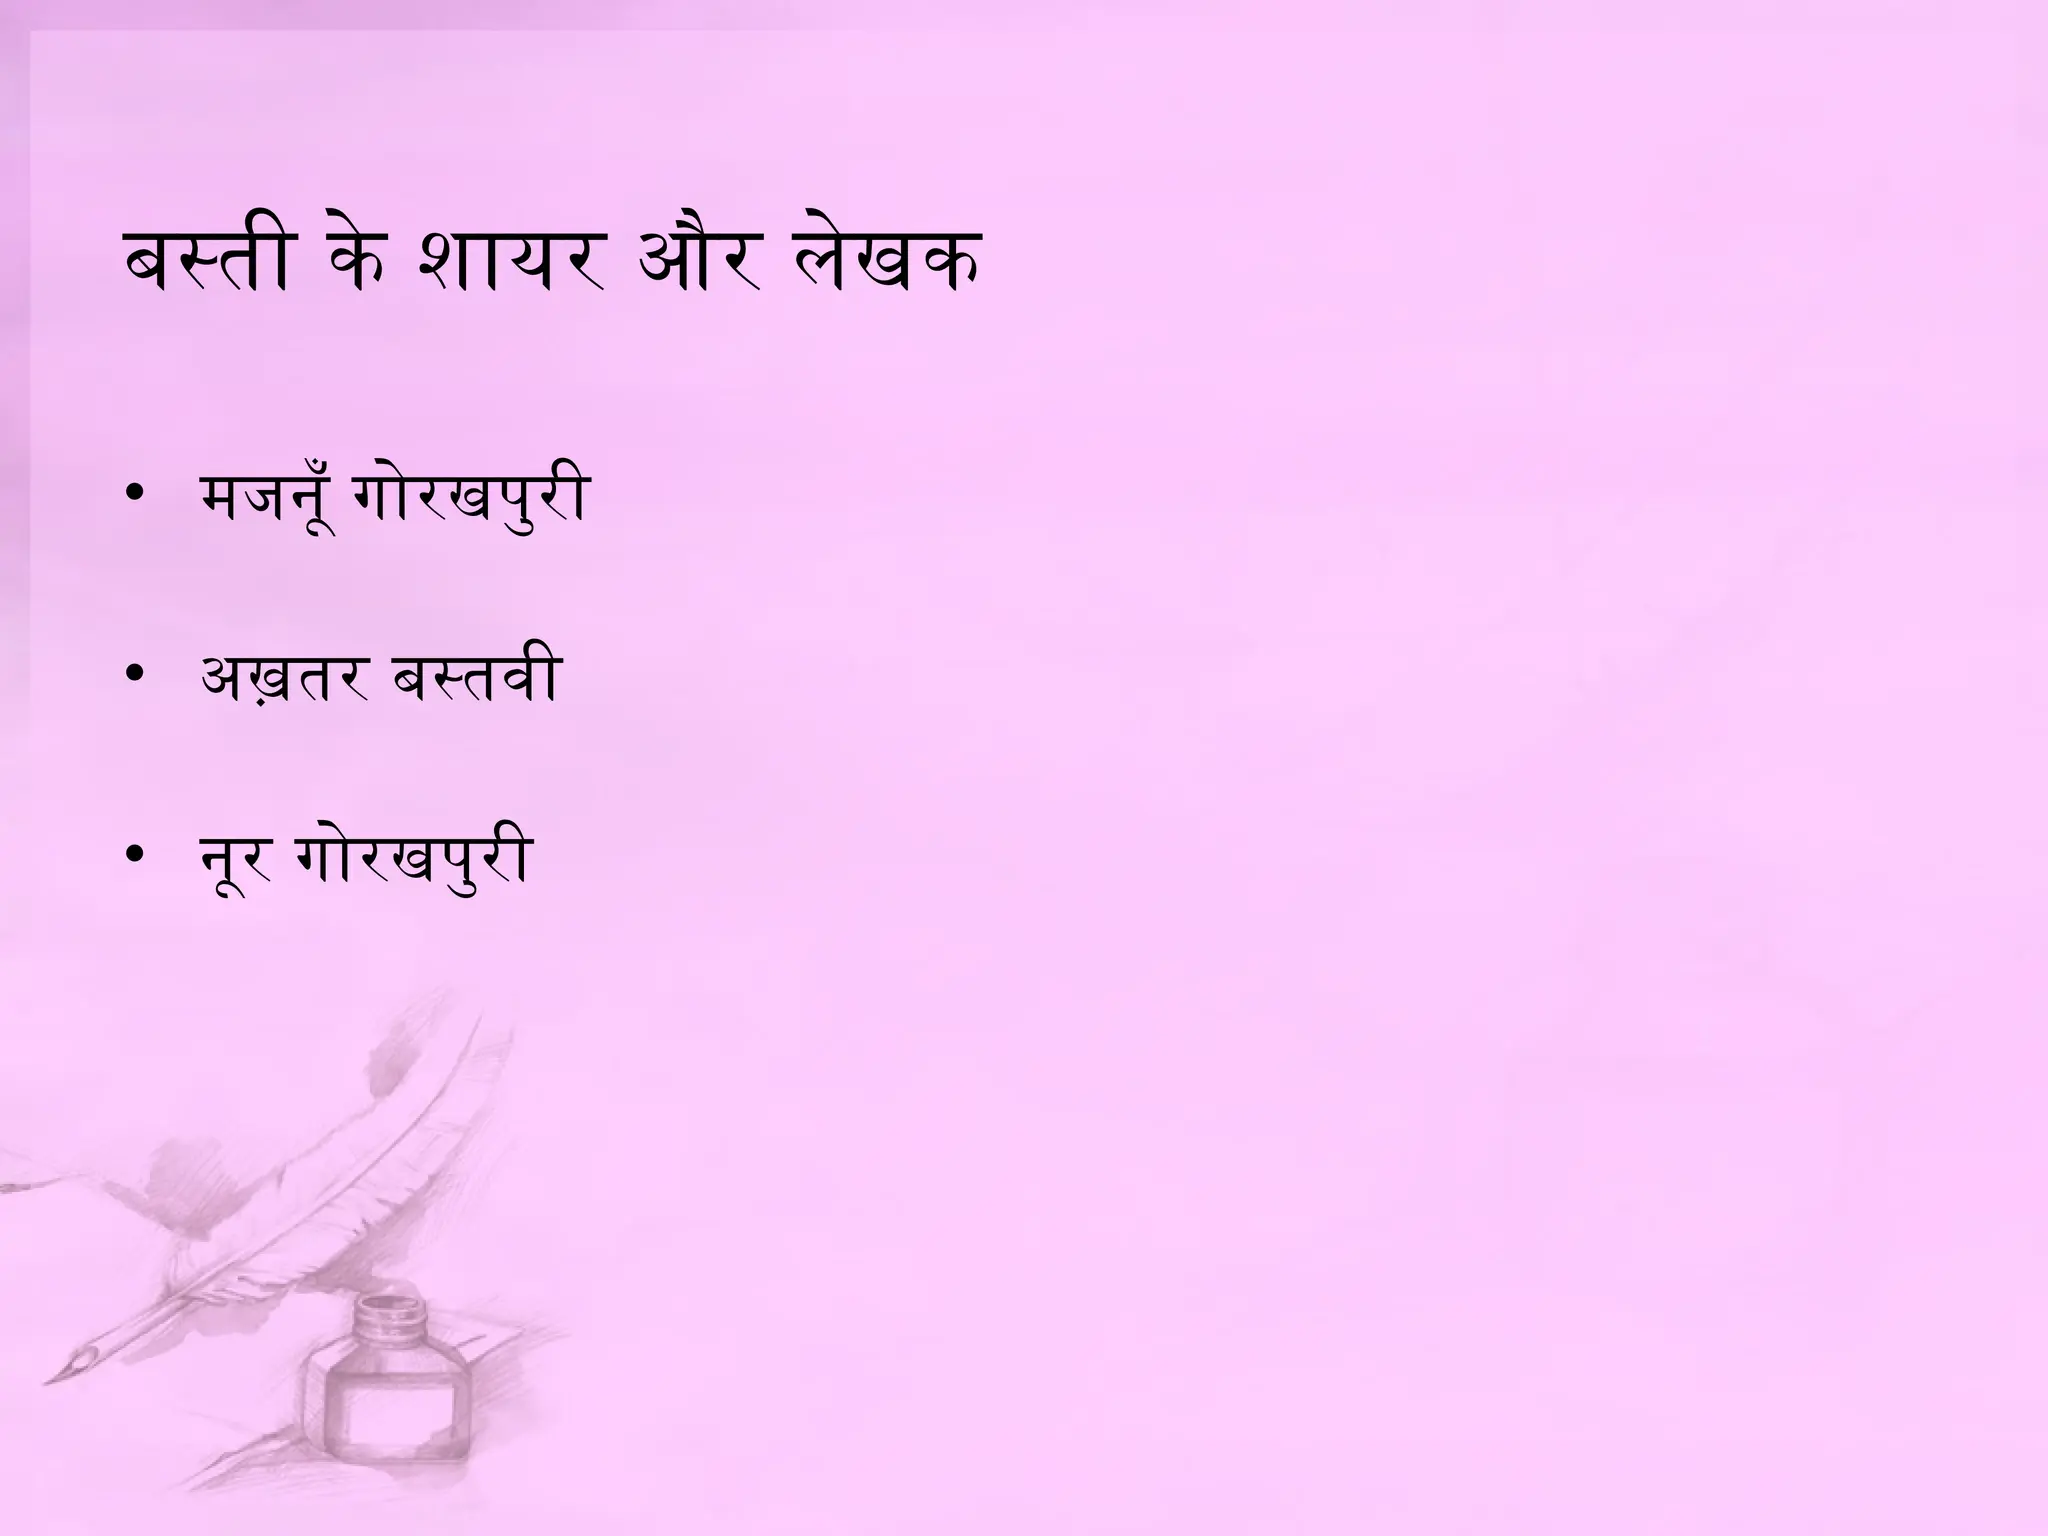 बस्ती के शायर और लेखक
• मजनूँ गोरखपुरी
• अख़तर बस्तवी
• नूर गोरखपुरी